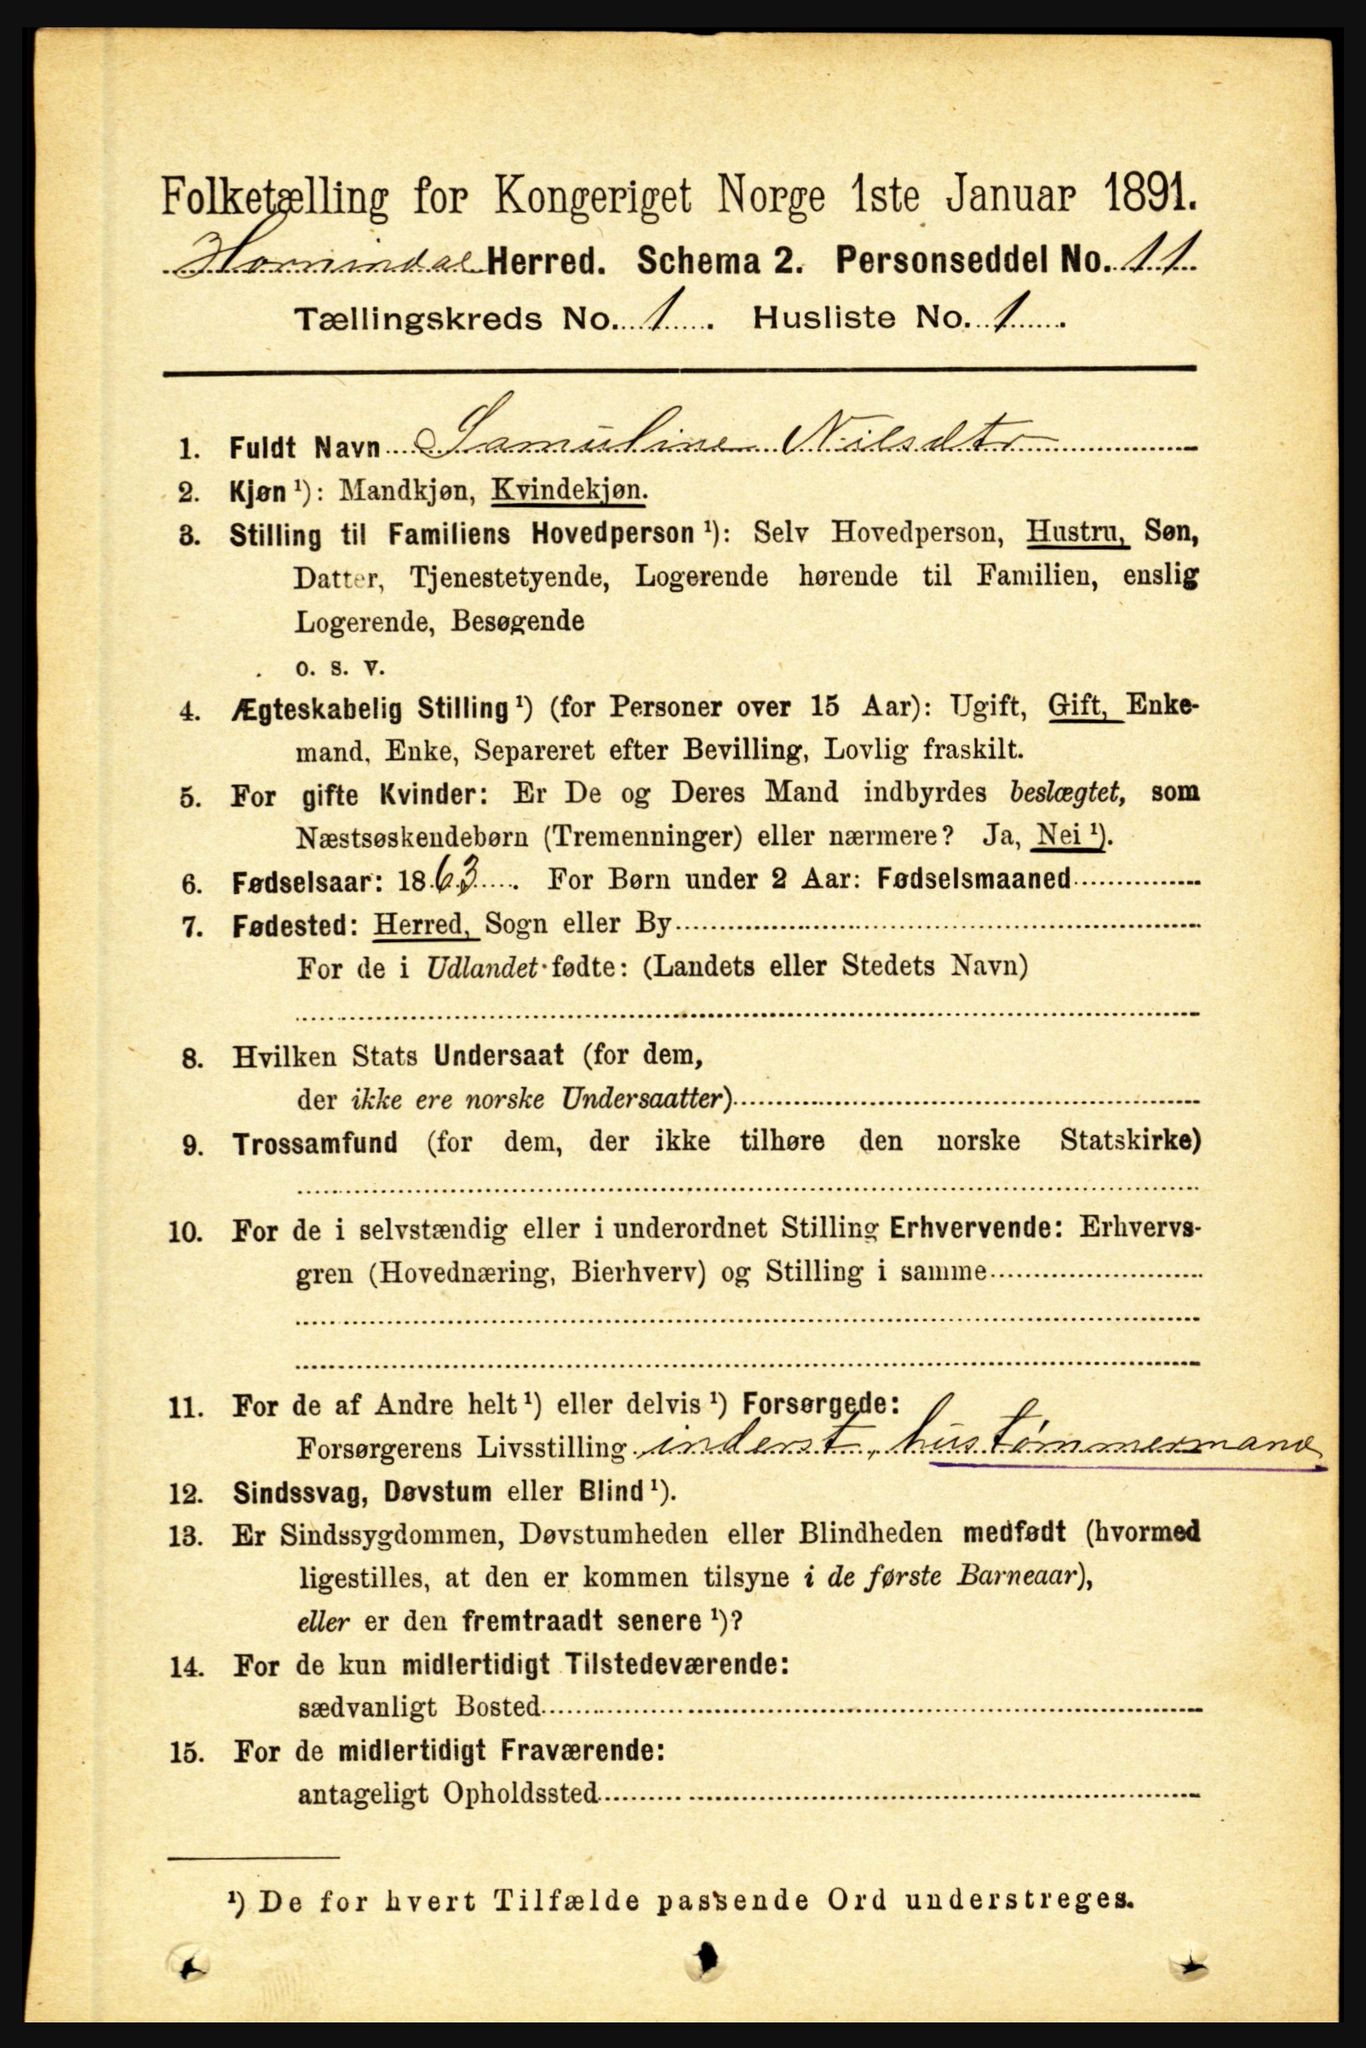 Folketælling for Kongeriget Norge 1ste Januar 1891.
Hornindal Herred. Schema 2. Personseddel No. 11
Tællingskreds No. 1. Husliste No. 1.
1. Fuldt Navn Samuline Nilsdtr
2. Kjøn ¹): Mandkjøn, Kvindekjøn.
3. Stilling til Familiens Hovedperson ¹): Selv Hovedperson, Hustru, Søn,
Datter, Tjenestetyende, Logerende hørende til Familien, enslig
Logerende, Besøgende
o. s. v.
4. Ægteskabelig Stilling ¹) (for Personer over 15 Aar): Ugift, Gift, Enke-
mand, Enke, Separeret efter Bevilling, Lovlig fraskilt.
5. For gifte Kvinder: Er De og Deres Mand indbyrdes beslægtet, som
Næstsøskendebørn (Tremenninger) eller nærmere? Ja, Nei ¹).
6. Fødselsaar: 1863. For Børn under 2 Aar: Fødselsmaaned
7. Fødested: Herred, Sogn eller By
For de i Udlandet fødte: (Landets eller Stedets Navn)
8. Hvilken Stats Undersaat (for dem,
der ikke ere norske Undersaatter)
9. Trossamfund (for dem, der ikke tilhøre den norske Statskirke)
10. For de i selvstændig eller i underordnet Stilling Erhvervende: Erhvervs-
gren (Hovednæring, Bierhverv) og Stilling i samme
11. For de af Andre helt ¹) eller delvis ¹) Forsørgede:
Forsørgerens Livsstilling inderst, hustømmermand
12. Sindssvag, Døvstum eller Blind ¹).
13. Er Sindssygdommen, Døvstumheden eller Blindheden medfødt (hvormed
ligestilles, at den er kommen tilsyne i de første Barneaar),
eller er den fremtraadt senere ¹)?
14. For de kun midlertidigt Tilstedeværende:
sædvanligt Bosted
15. For de midlertidigt Fraværende:
antageligt Opholdssted
¹) De for hvert Tilfælde passende Ord understreges.